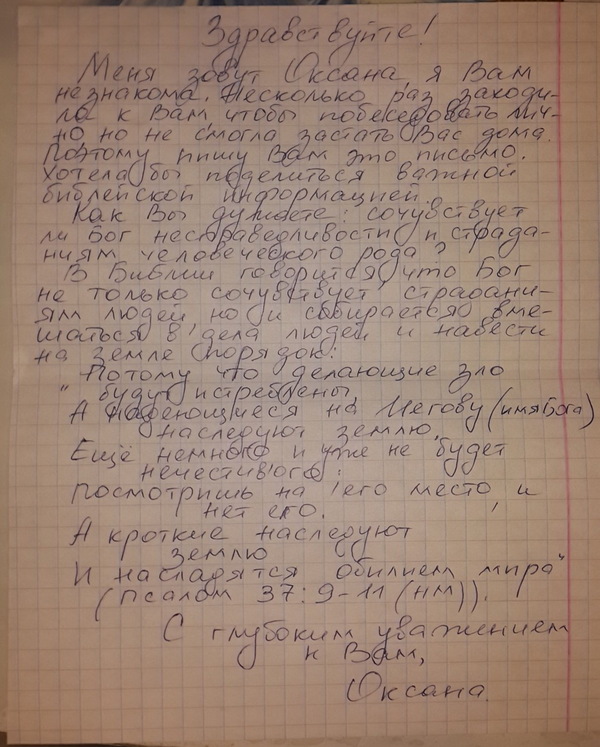 Здравствуйте!
Меня зовут Оксана, я Вам
незнакома. Несколько раз заходи-
ла к Вам, чтобы побеседовать лич-
но, но не смогла застать Вас дома.
Поэтому пишу Вам это письмо.
Хотела бы поделиться важной
библейской информацией.
Как Вы думаете: сочувствует
ли Бог несправедливости и страда-
ниям человеческого рода?
В Библии говорится, что Бог
не только сочувствует страдани-
ям людей но и собирается вме-
шаться в дела людей и навести
на земле порядок:
"Потому что делающие зло
будут истреблены,
А надеющиеся на Иегову (имя Бога)
наследуют землю.
Ещё немного и уже не будет
нечестивого;
Посмотришь на его место, и
нет его.
А кроткие наследуют
землю
И насладятся обилием мира"
(Псалом 37:9-11 (НМ)).
С глубоким уважением
к Вам,
Оксана.